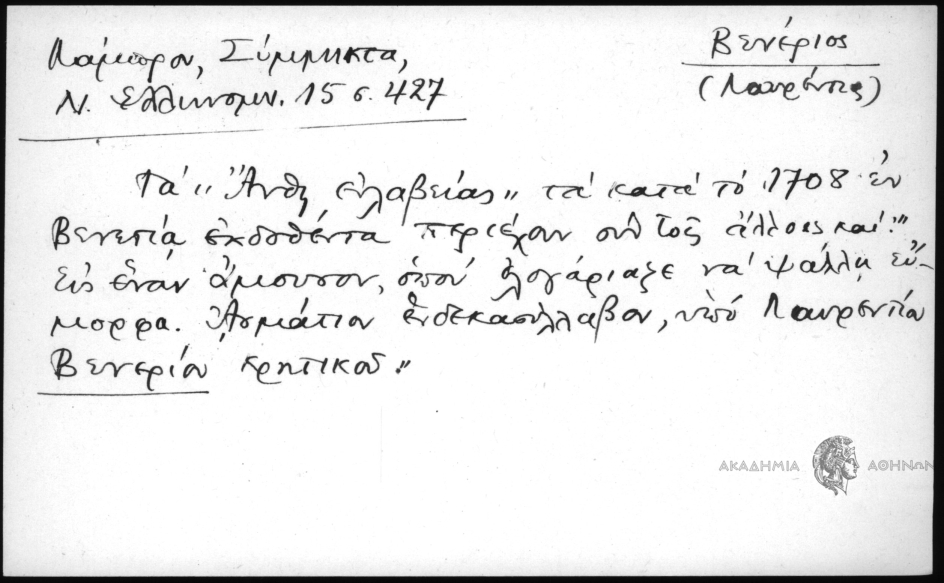 Λάμπρου, Σύμμηκτα,
Ν. Ελληνομν. 15 σ. 427
Βενέριος
(Λαυρέντιος)
Τά „Ἄνθη εὐλαβείας„ τά κατά τό 1708 ἐν
Βενετίᾳ ἐκδοθέντα περιέχουν σύν τοῖς ἄλλοις καί:"
Εἰς ἕναν ἄμουσον, ὁπού ἐλογάριαζε νά ψάλλῃ εὔ-
μορφα. ᾈσμάτιον ἑνδεκασύλλαβον, ὑπό Λαυρεντίου
Βενερίου κρητικοῦ„
ΑΚΑΔΗΜΙΑ ΑΘΗΝΩΝ